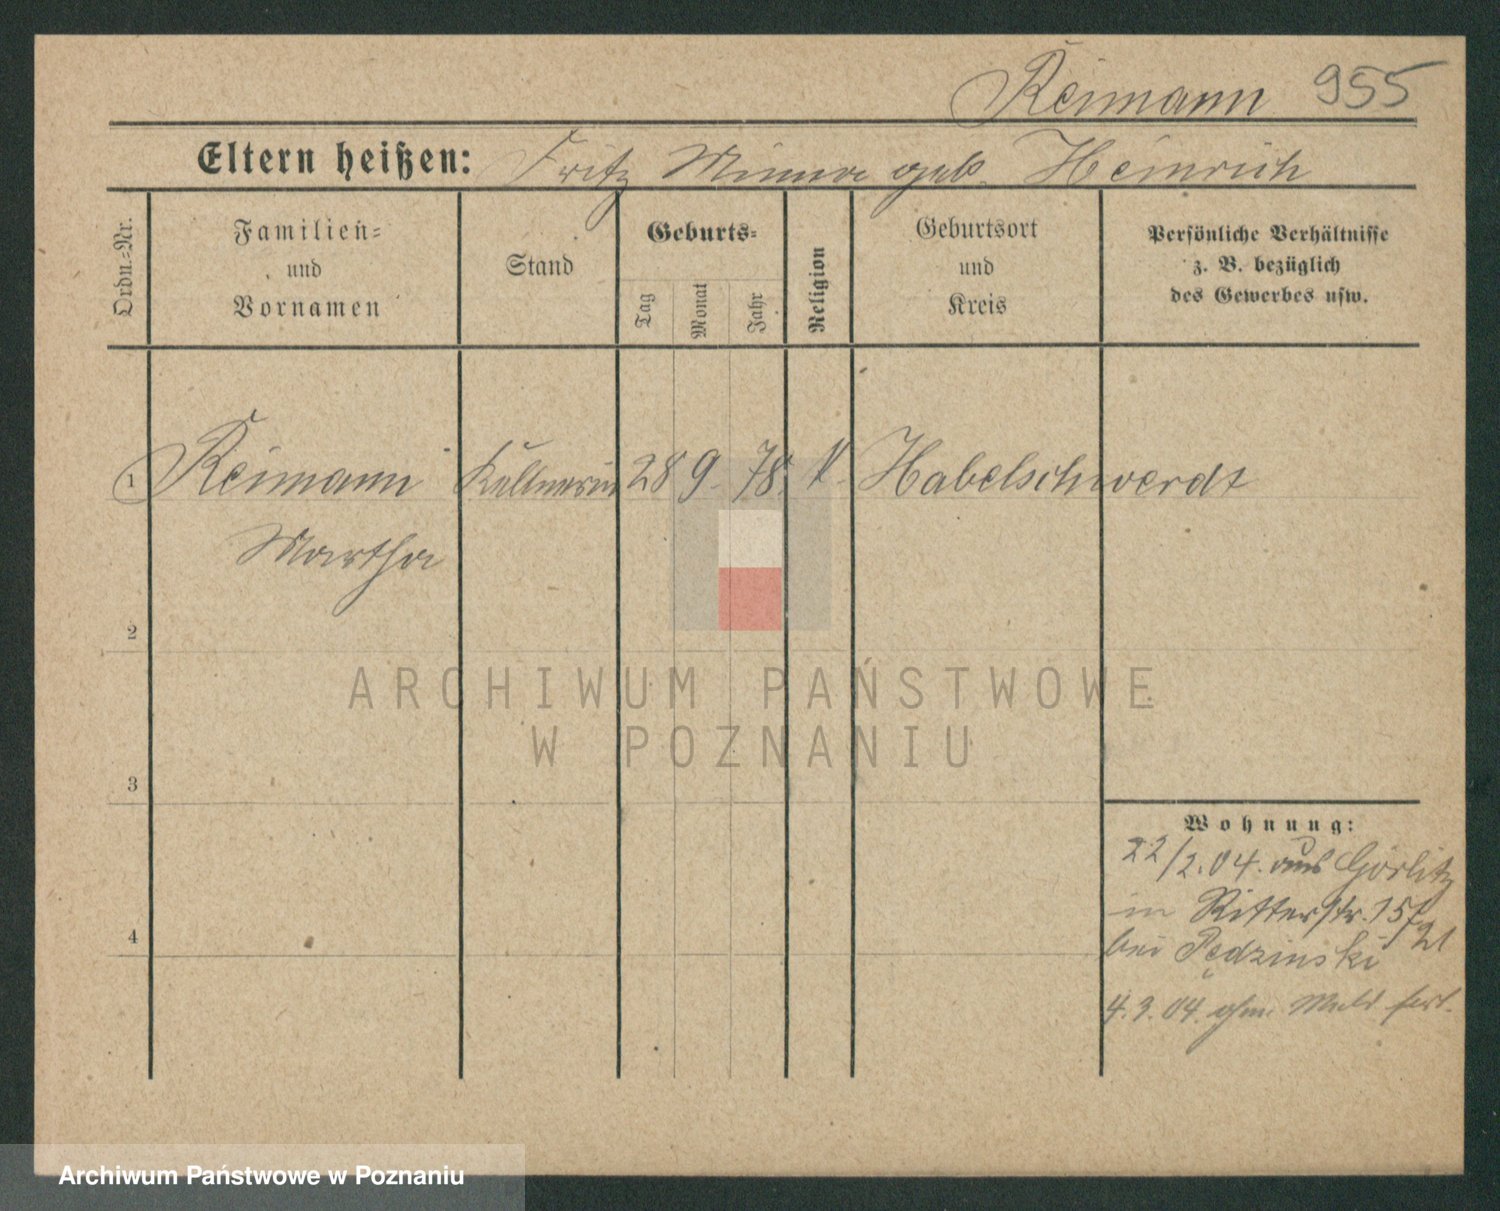 Reimann 955
Eltern heißen: Fritz Minna geb. Heinrich
Ordn.-Nr.
Familien-
und
Vornamen
Stand
Geburts-
Tag
Monat
Jahr
Religion
Geburtsort
und
Kreis
Persönliche Verhältnisse
z. B. bezüglich
des Gewerbes usw.
1 Reimann Kellnerin 28 9. 78. Habelschwerdt
Martha
2
3
4
Wohnung:
22/2.04. aus Görlitz
in Ritterstr. 15/21
bei Pędzinski
4.3.04. ohne Meld fort.
ARCHIWUM PAŃSTWOWE
W POZNANIU
Archiwum Państwowe w Poznaniu